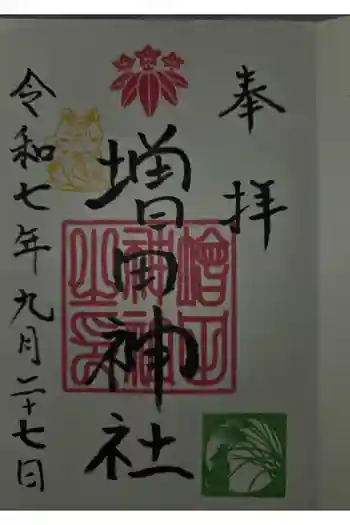 奉拝
増田神社
増田神社之印
令和七年九月二十七日